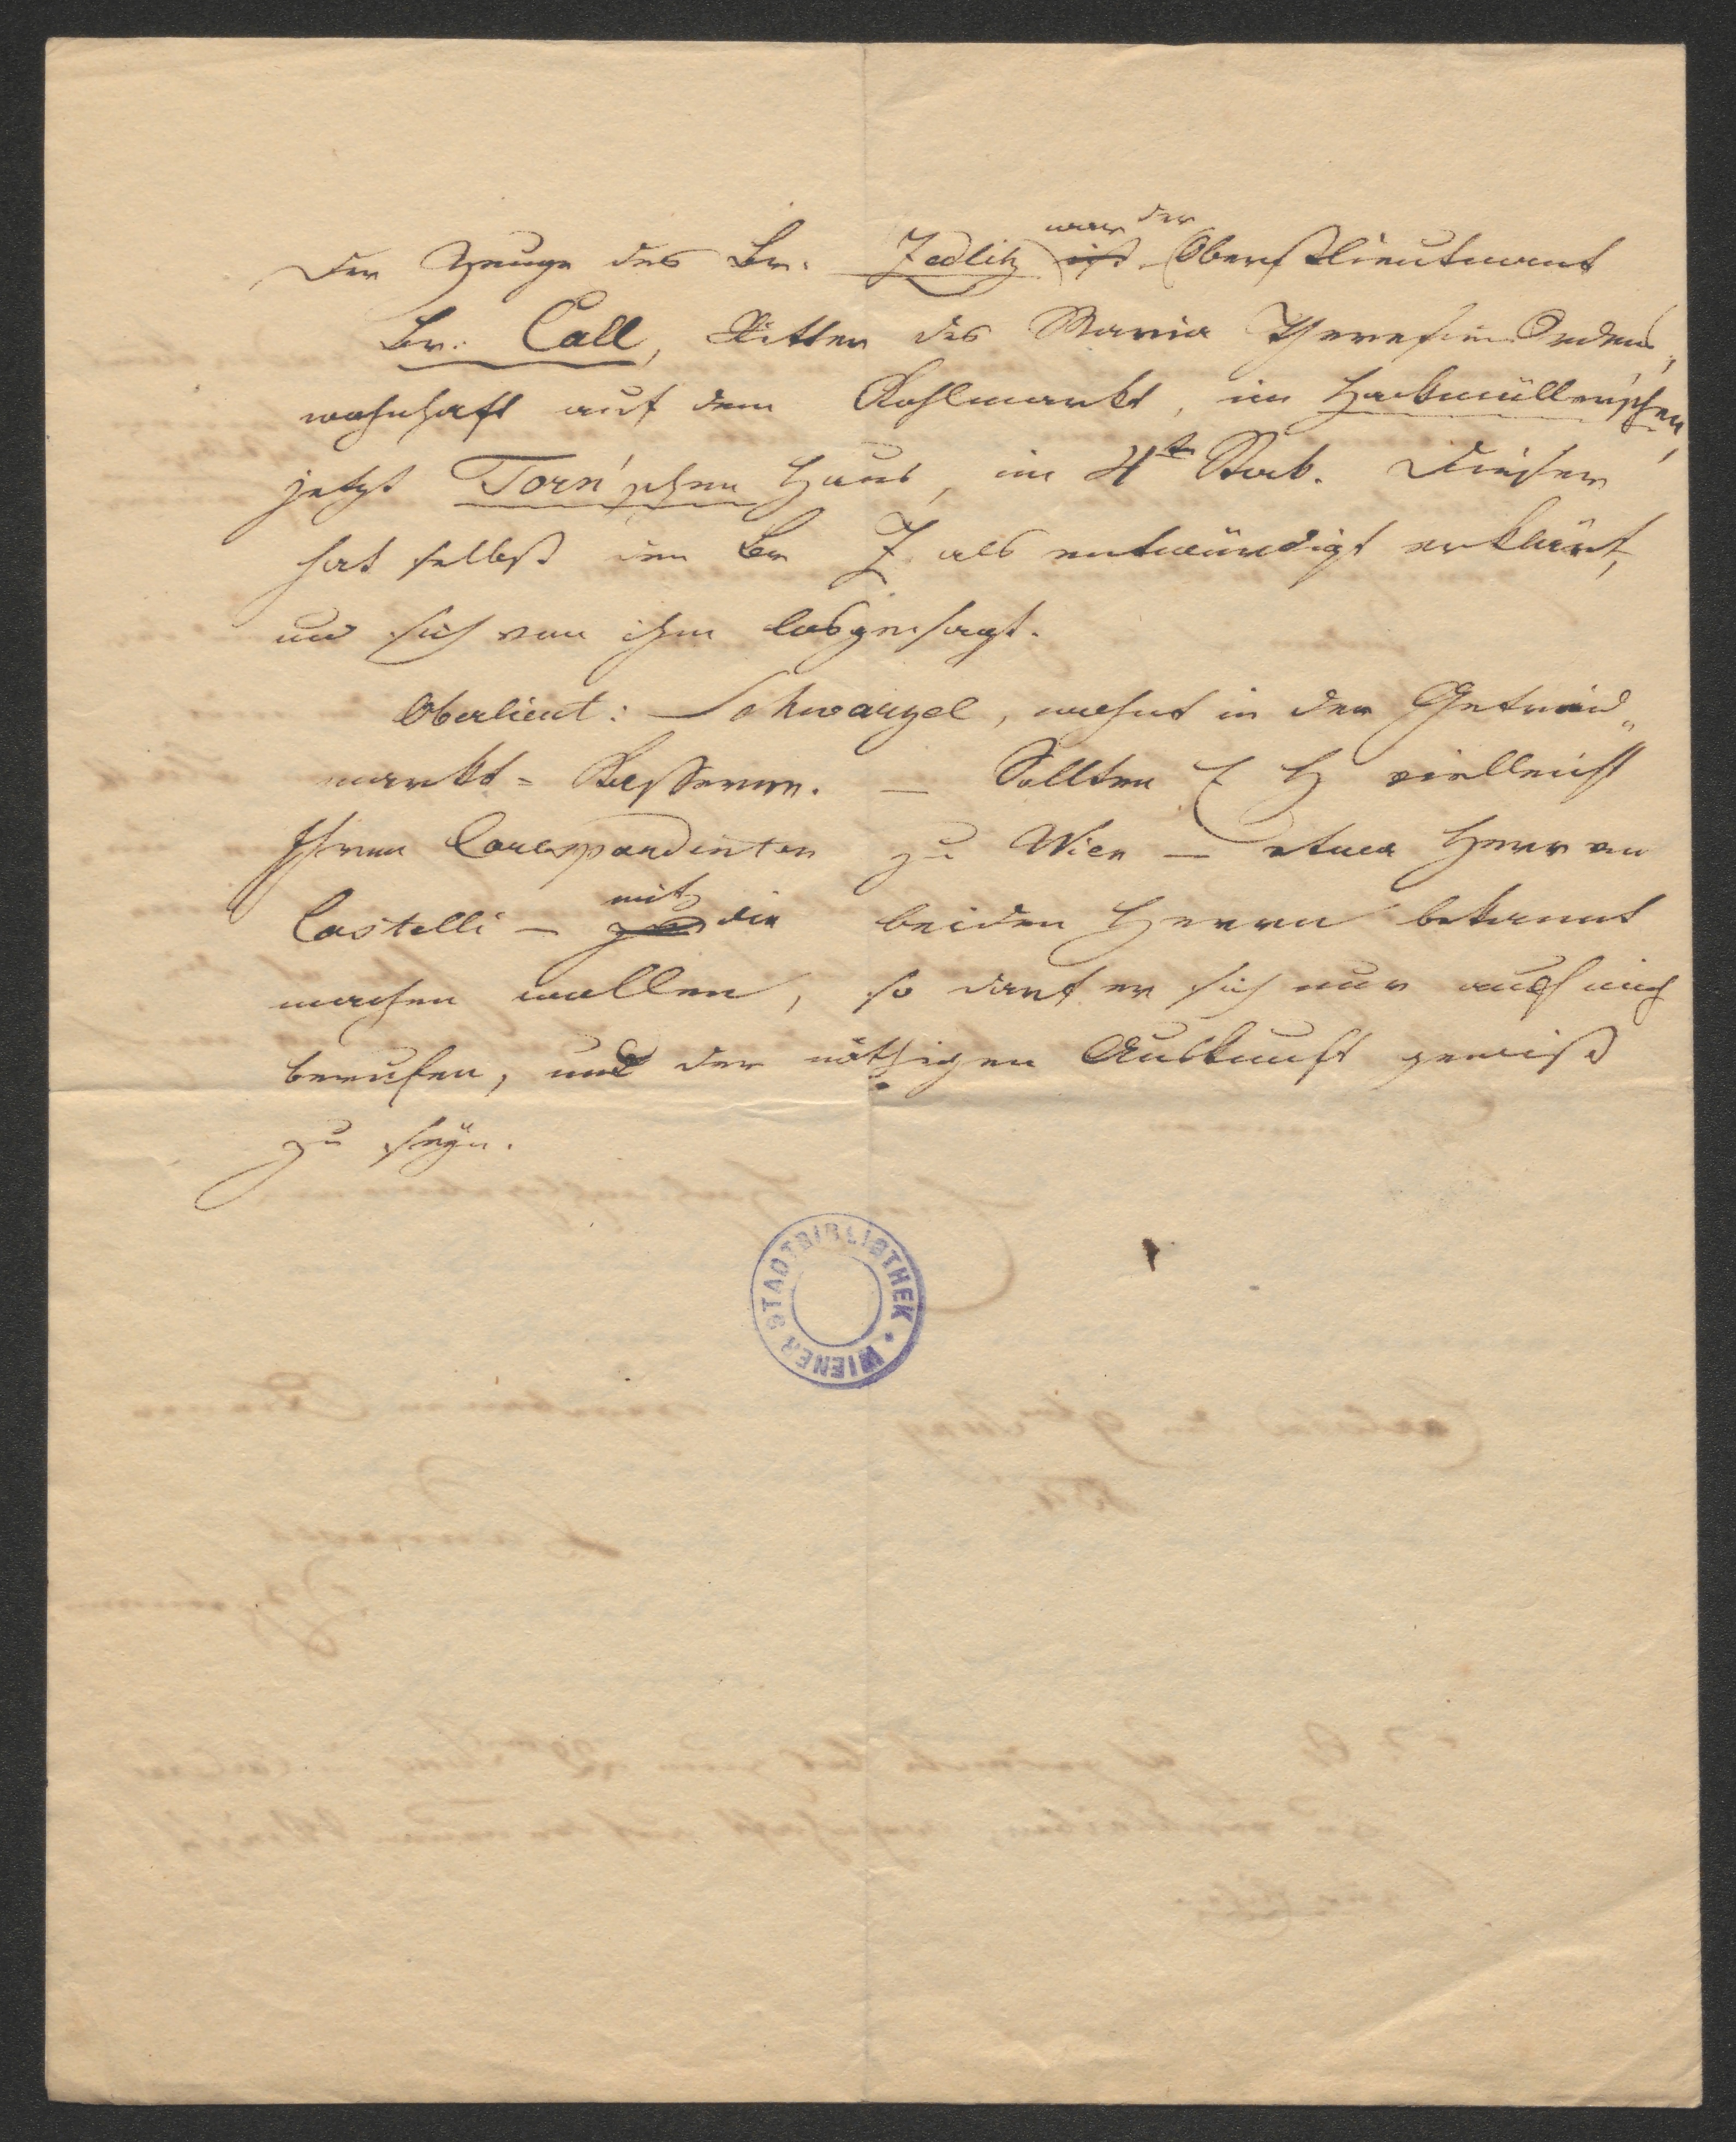 Der Zeuge des Br. Zedlitz ist war der Oberstlieutenant
Br. Call, Ritter des Maria Theresien Ordens,
wohnhaft auf dem Kohlmarkt, im Hackmüller'schen,
jetzt Torn'schen Haus, im 4t Stock. Dieser
hat selbst den Br Z als entwürdigt erklärt,
und sich von ihm losgesagt.
Oberlieut: Schwarzel, wohnt in der Getreid„
markt=Kasserne. — Sollten E H vielleicht
Ihren Correspondenten zu Wien — etwa Herr von
Castelli — mit die beiden Herrn bekannt
machen wollen, so darf er sich nur auf mich
berufen, und der nöthigen Auskunft gewiß
zu seyn.
WIENER STADTBIBLIOTHEK